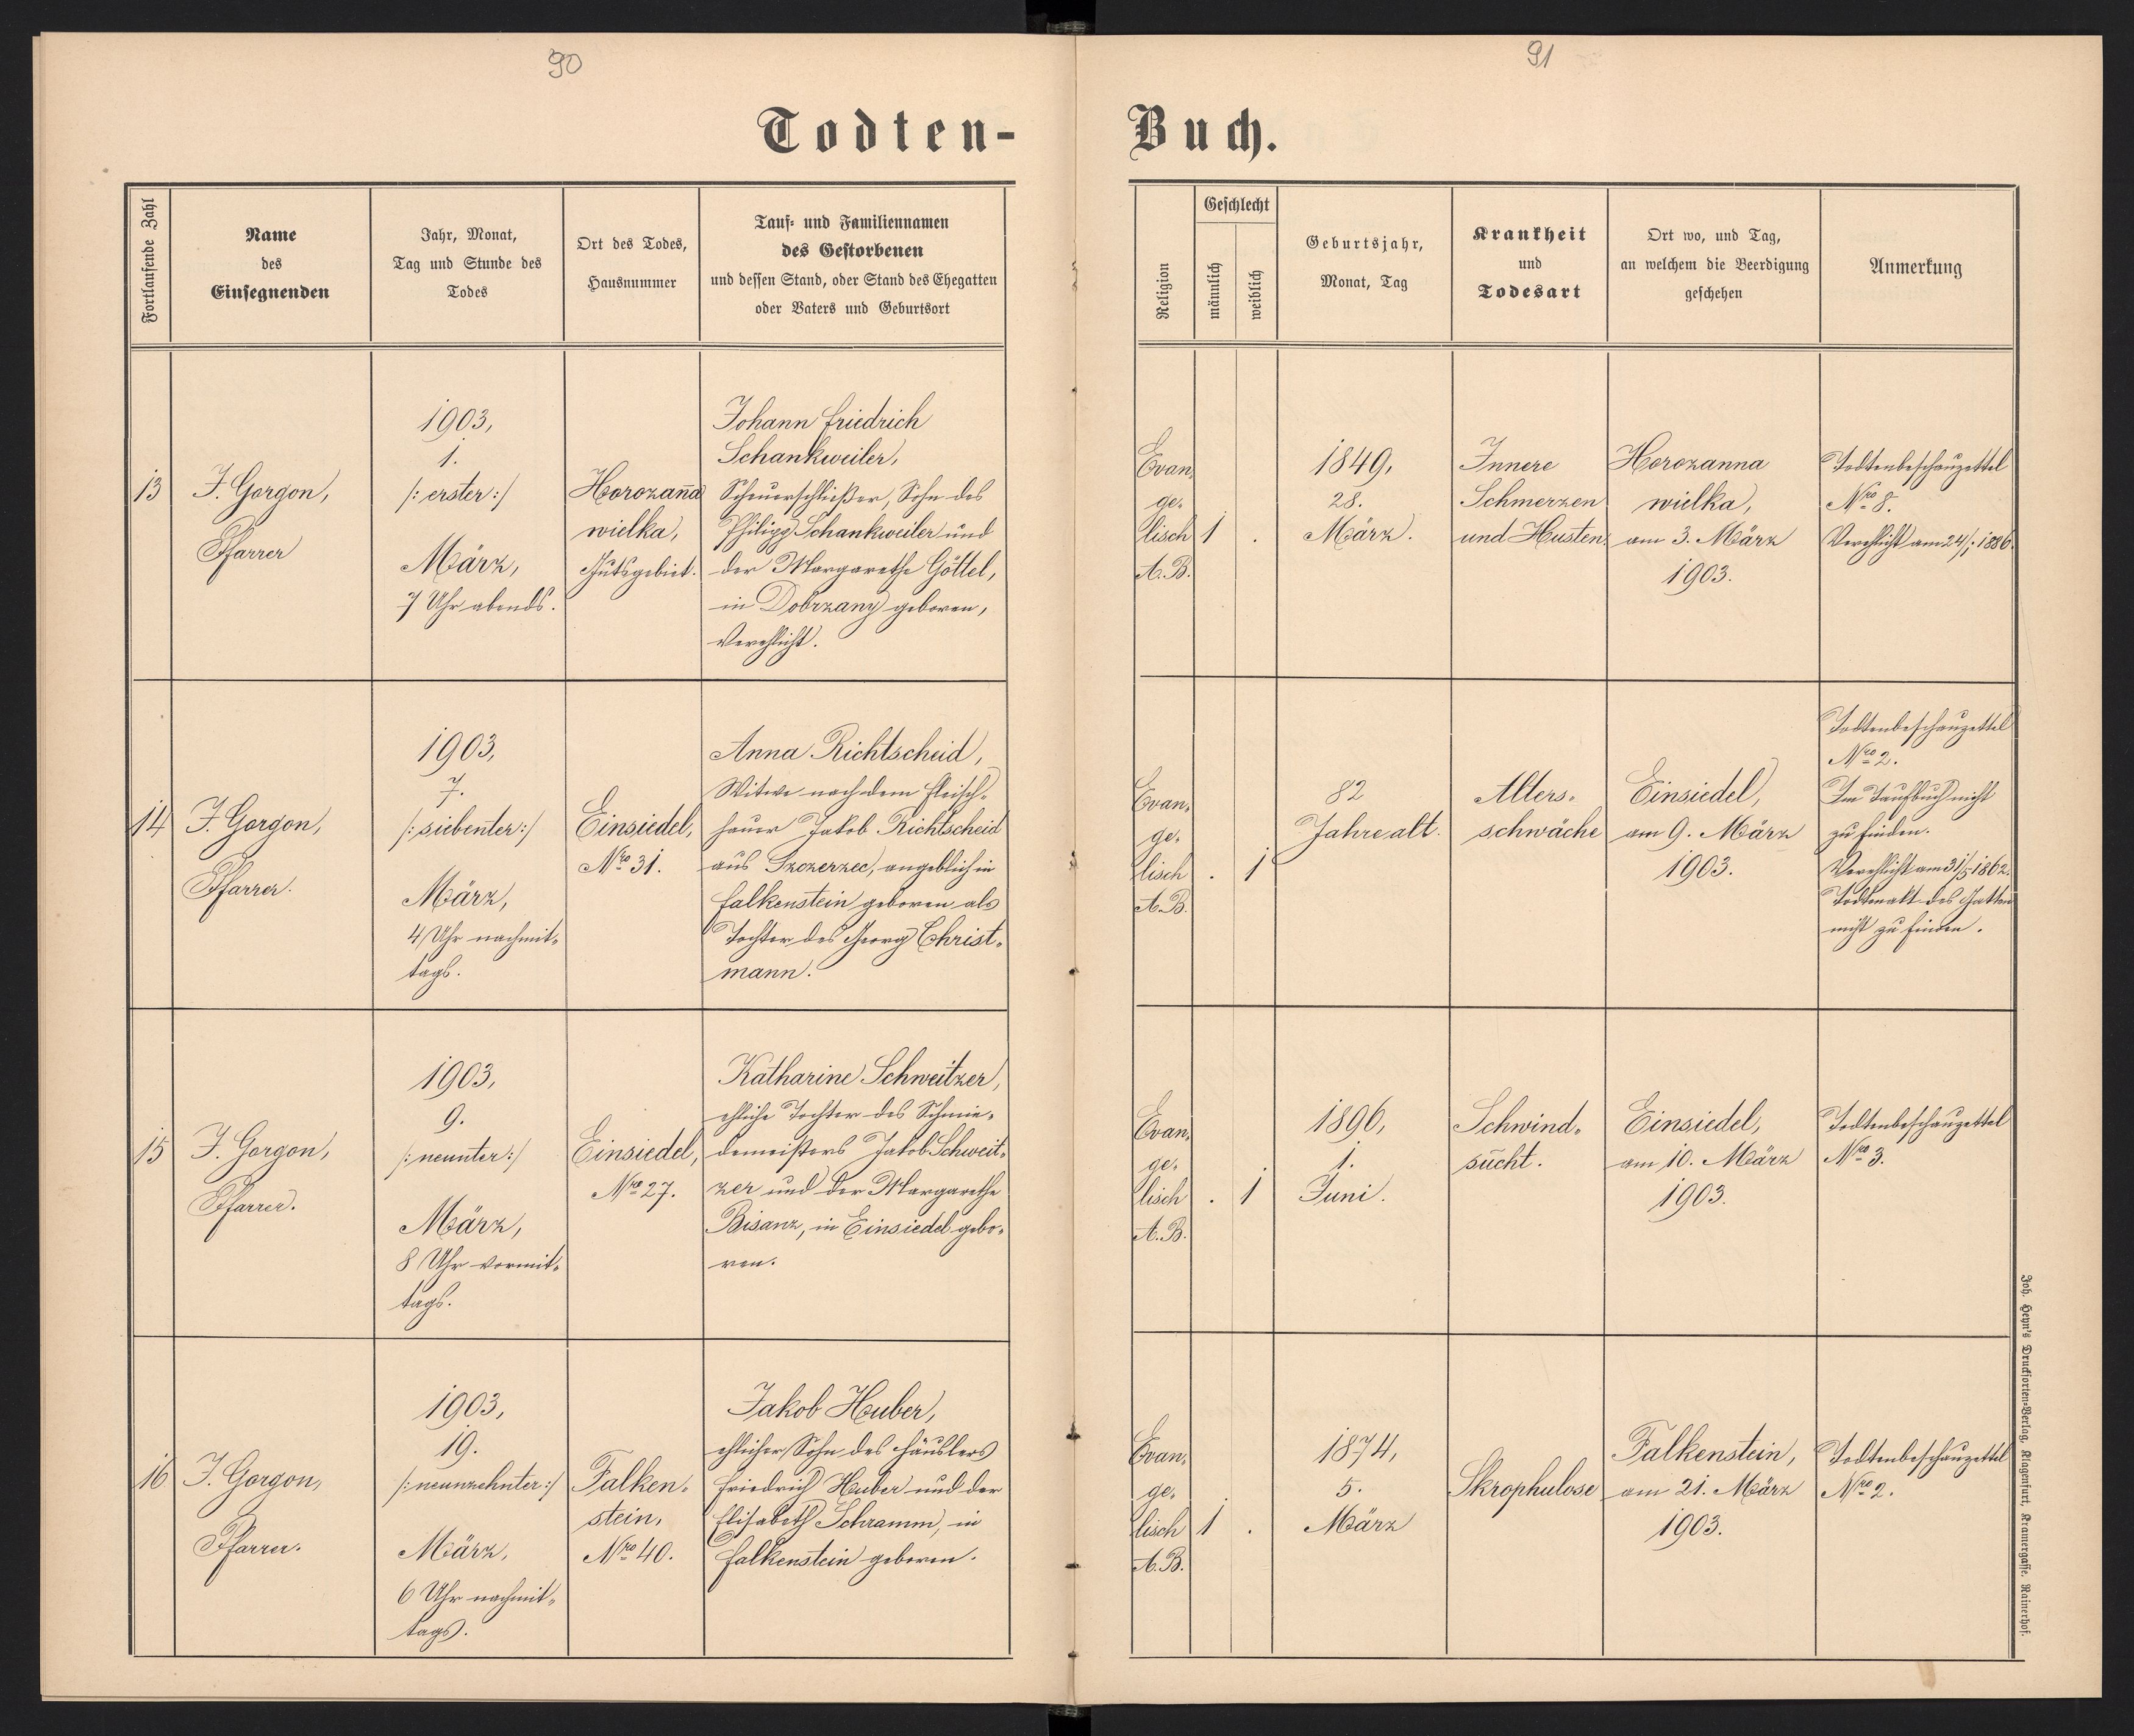 90
91
Todten-
Buch.
Fortlaufende Zahl
Name
des
Einsegnenden
Jahr, Monat,
Tag und Stunde des
Todes
Ort des Todes,
Hausnummer
Tauf- und Familiennamen
des Gestorbenen
und dessen Stand, oder Stand des Ehegatten
oder Vaters und Geburtsort
Religion
Geschlecht
männlich
weiblich
Geburtsjahr,
Monat, Tag
Krankheit
und
Todesart
Ort wo, und Tag,
an welchem die Beerdigung
geschehen
Anmerkung
13
J. Gorgon,
Pfarrer
1903,
1.
/: erster :/
März,
7 Uhr abends.
Horozan̄a
wielka,
Gutsgebiet.
Johann Friedrich
Schankweiler,
Scheuerschließer, Sohn des
Philipp Schankweiler und
der Margarethe Göttel,
in Dobrzany geboren,
Verehlicht.
Evan-
ge-
lisch
A. B.
1
.
1849,
28.
März.
Innere
Schmerzen
und Husten.
Horozanna
wielka,
am 3. März
1903.
Todtenbeschauzettel
Nro 8.
Verehlicht am 24/1. 1886.
14
J. Gorgon,
Pfarrer.
1903,
7.
/: siebenter :/
März,
4 Uhr nachmit-
tags.
Einsiedel,
Nro 31.
Anna Richtscheid,
Witwe nach dem Fleisch-
hauer Jakob Richtscheid
aus Szczerzec, angeblich in
Falkenstein geboren als
Tochter des Georg Christ-
mann.
Evan-
ge-
lisch
A. B.
.
1
82
Jahre alt.
Alters-
schwäche
Einsiedel,
am 9. März
1903.
Todtenbeschauzettel
Nro 2.
Im Taufbuch nicht
zu finden.
Verehlicht am 31/5 1862.
Todtenakt des Gatten
nicht zu finden.
15
J. Gorgon,
Pfarrer.
1903,
9.
/: neunter :/
März,
8 Uhr vormit-
tags.
Einsiedel,
Nro 27.
Katharine Schweitzer,
ehliche Tochter des Schmie-
demeisters Jakob Schweit-
zer und der Margarethe
Bisanz, in Einsiedel gebo-
ren.
Evan-
ge-
lisch
A. B.
.
1
1896,
1.
Juni.
Schwind-
sucht.
Einsiedel,
am 10. März
1903.
Todtenbeschauzettel
Nro 3.
16
J. Gorgon,
Pfarrer.
1903,
19.
/: neunzehnter :/
März,
6 Uhr nachmit-
tags.
Falken-
stein,
Nro 40.
Jakob Huber,
ehlicher Sohn des Häuslers
Friedrich Huber und der
Elisabeth Schramm, in
Falkenstein geboren.
Evan-
ge-
lisch
A. B.
1
.
1874,
5.
März
Skrophulose
Falkenstein,
am 21. März
1903.
Todtenbeschauzettel
Nro 2.
Joh. Heyn's Drucksorten-Verlag, Klagenfurt, Kramergasse. Rainerhof.